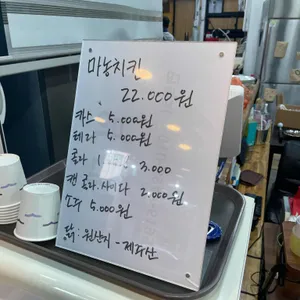 마농치킨
22.000원
카스 5.000원
테라 5.000원
콜라 1. 3.000
캔 콜라.사이다 2.000원
소주 5.000원
닭: 원산지 -